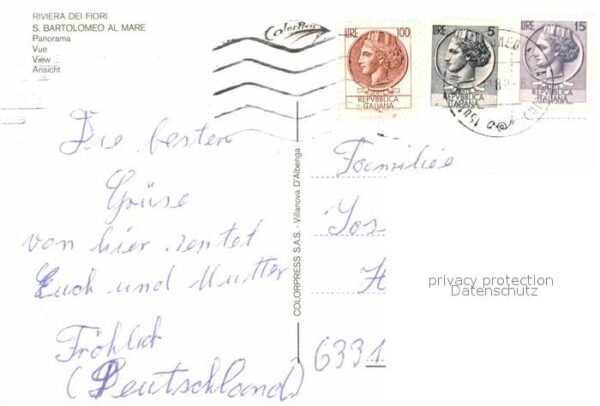 RIVIERA DEI FIORI
S. BARTOLOMEO AL MARE
Panorama
Vue
View
Ansicht
ColorPress
LIRE 100
REPVBBLICA
ITALIANA
LIRE 5
REPVBBLICA
ITALIANA
LIRE 15
REPVBBLICA
ITALIANA
Die besten
Grüse
von hier sentet
Euch und Mutter
Fröhlich
(Deutschland)
COLORPRESS S.A.S. - Villanova D'Albenga
Familie
Jos
H
6331
privacy protection
Datenschutz